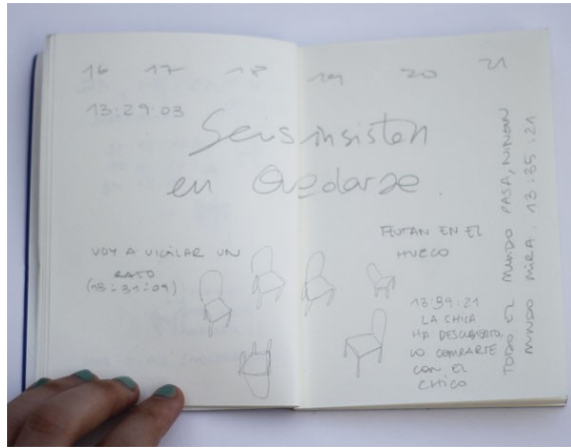 16 17 18 19 20 21
13:29:03
Seis insisten
en Quedarse.
VOY A VIGILAR UN
RATO
(13:31:09)
FLOTAN EN EL
HUECO
13:39:21
LA CHICA
HA DESCUBIERTO,
LO COMPARTE
CON EL
CHICO
TODO EL MUNDO PASA, NINGÚN
MUNDO MIRA. 13:35:21